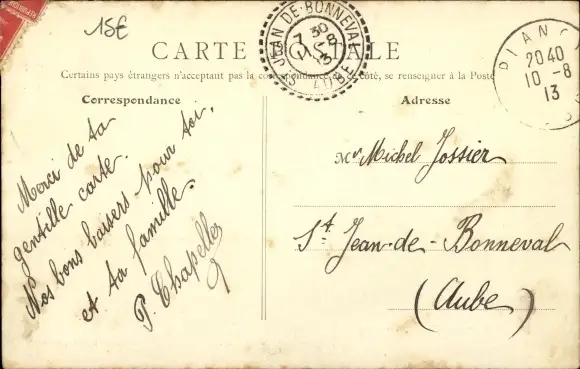 15€
CARTE POSTALE
Certains pays étrangers n'acceptant pas la correspondance de ce côté, se renseigner à la Poste
Correspondance
Merci de ta
gentille carte.
Nos bons baisers pour toi,
et ta famille.
P. Chapelley
Adresse
Michel Jossier
St. Jean-de-Bonneval
(Aube)
St JEAN-DE-BONNEVAL
7 30
AUBE
PIAN
20 40
10 -8
13